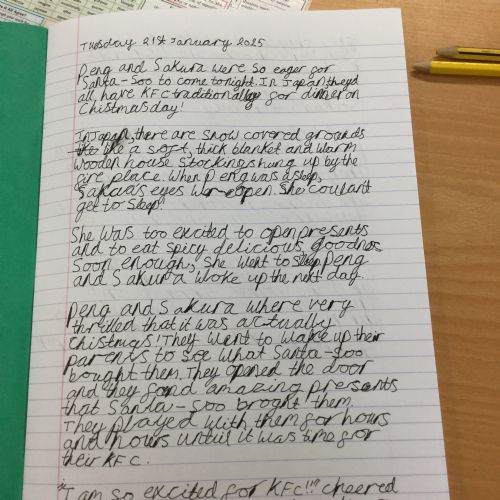 Tuesday 21st January 2025
Peng and Sakura were so eager for
Santa-Soo to come tonight. In Japan they'd
all have KFC traditionally for dinner on
Chistmas day!
In Japan, there are snow covered grounds
like a soft, thick blanket and warm
wooden house stockings hung up by the
fire place. When Peng was asleep,
Sakura's eyes were open. She couldnt
get to sleep!
She was too excited to open presents
and to eat spicy delicious goodnes
Soon enough, she went to sleep Peng
and Sakura woke up the next day.
Peng and Sakura where very
thrilled that it was actually
Chistmas! They went to wake up their
parents to see what Santa-Soo
bought them. They opened the door
and they fond amazing presents
that Santa-Soo broght them.
They played with them for hours
and hours until it was time for
their KFC.
"I am so excited for KFC!!!" cheered